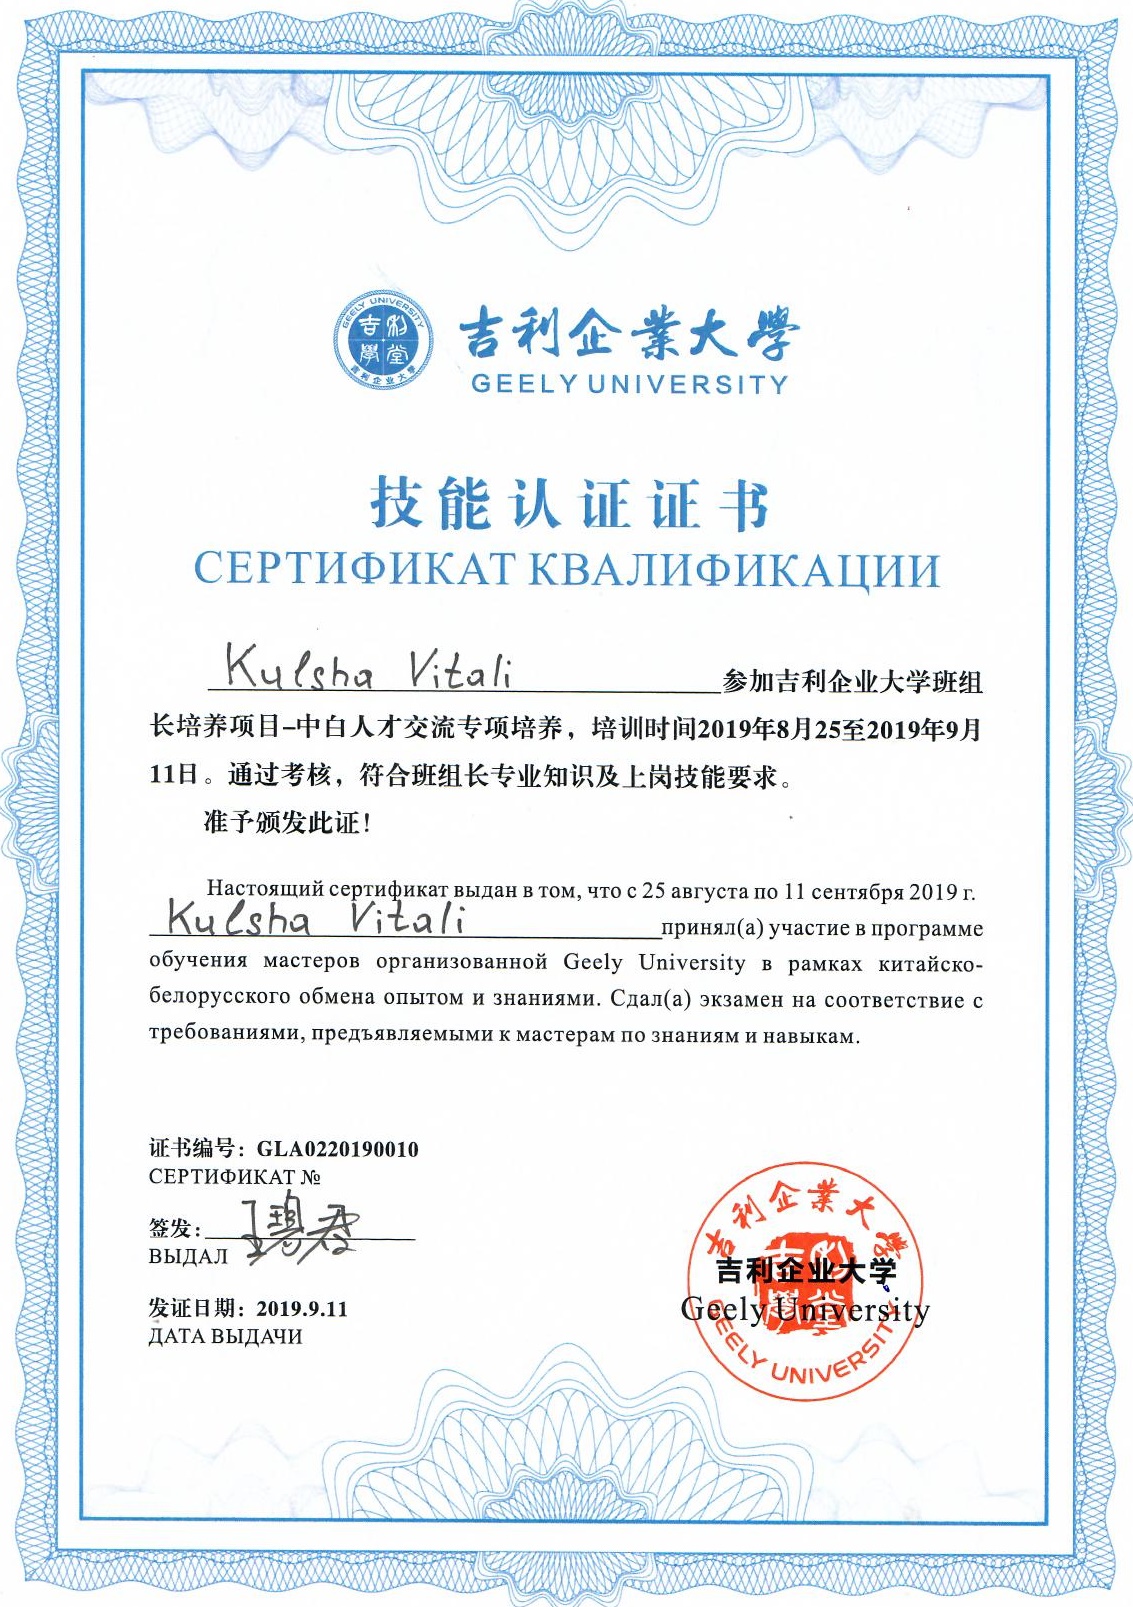 GEELY UNIVERSITY
吉利
學堂
吉利企业大学
吉利企業大學
GEELY UNIVERSITY
技能认证证书
СЕРТИФИКАТ КВАЛИФИКАЦИИ
Kulsha Vitali 参加吉利企业大学班组
长培养项目–中白人才交流专项培养，培训时间2019年8月25至2019年9月
11日。通过考核，符合班组长专业知识及上岗技能要求。
准予颁发此证!
Настоящий сертификат выдан в том, что с 25 августа по 11 сентября 2019 г.
Kulsha Vitali принял(а) участие в программе
обучения мастеров организованной Geely University в рамках китайско-
белорусского обмена опытом и знаниями. Сдал(а) экзамен на соответствие с
требованиями, предъявляемыми к мастерам по знаниям и навыкам.
证书编号: GLA0220190010
СЕРТИФИКАТ №
签发:
ВЫДАЛ
发证日期: 2019.9.11
ДАТА ВЫДАЧИ
吉利企業大學
吉利
學堂
吉利企业大学
Geely University
GEELY UNIVERSITY